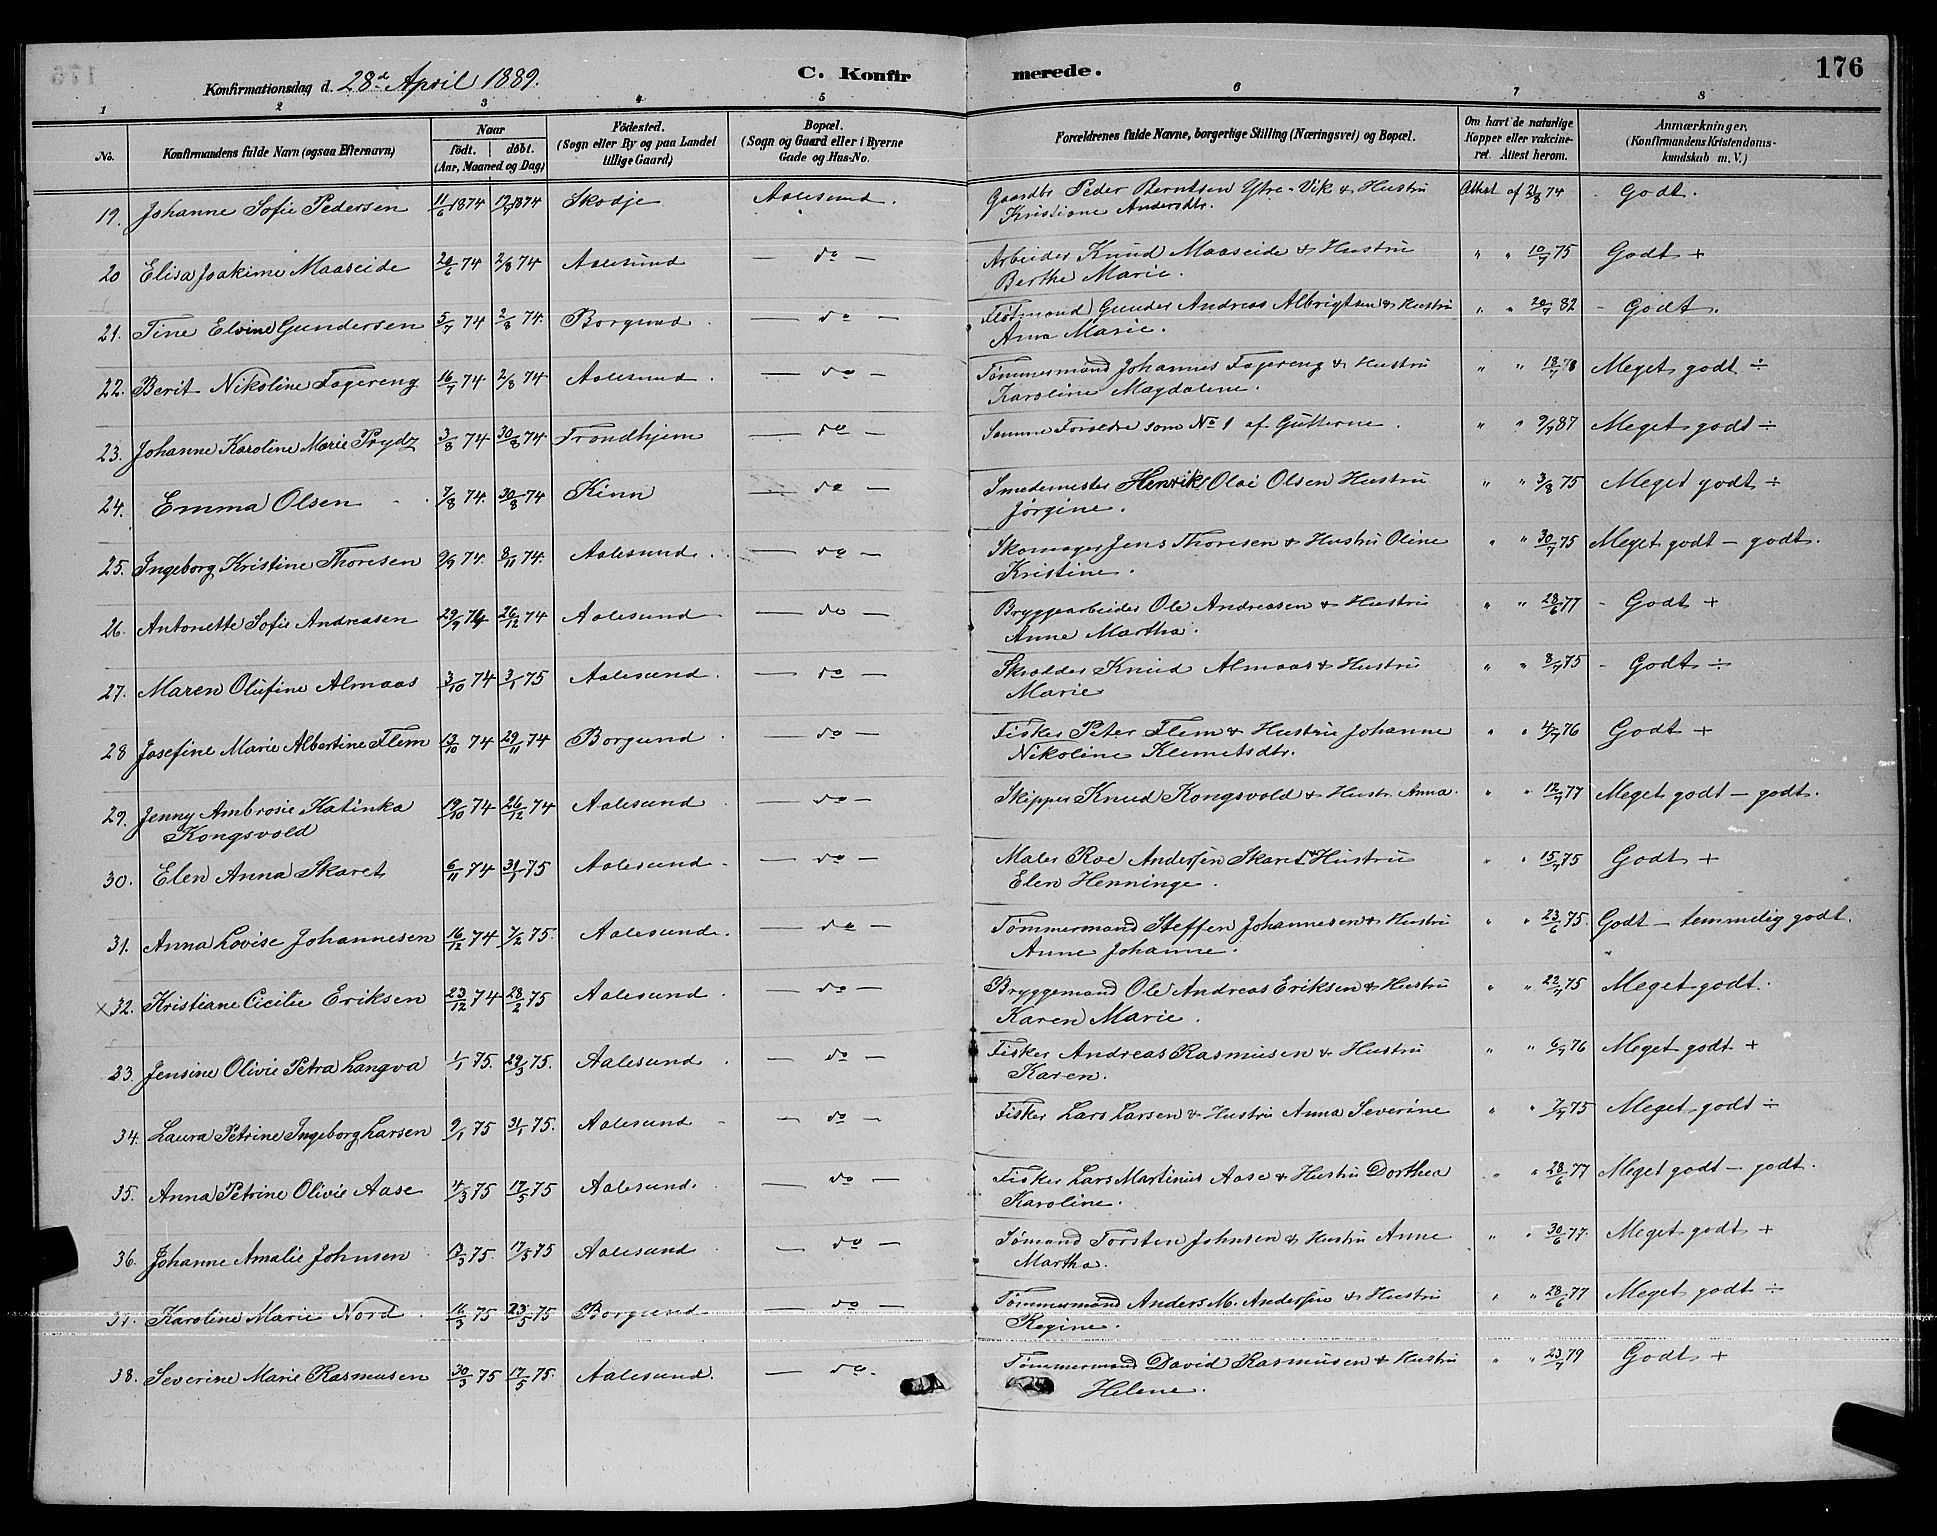 Konfirmationsdag d. 28de April 1889. C. Konfirmerede. 176
1 2 3 4 5 6 7 8
No. Konfirmandens fulde Navn (ogsaa Efternavn) Naar født. døbt. (Aar, Maaned og Dag) Fødested. (Sogn eller By og paa Landet tillige Gaard) Bopæl. (Sogn og Gaard eller i Byerne Gade og Hus-No. Forældrenes fulde Navne, borgerlige Stilling (Næringsvei) og Bopæl. Om havt de naturlige Kopper eller vakcineret. Attest herom. Anmærkninger. (Konfirmandens Kristendomskundskab m. V.)
19. Johanne Sofie Pedersen 11/6 1874 12/7 1874 Skodje Aalesund. Gaardbr Peder Berntsen Ytre-Vik & Hustru Attest af 21/8 74 - Godt.
Kristiane Andersdtr.
20 Elisa Joakime Maaseide 20/6 74 2/8 74 Aalesund — do — Arbeider Knud Maaseide & Hustru " " 10/7 75 Godt +
Berthe Marie.
21. Tine Elvine Gundersen 5/7 74 2/8 74. Borgund. — do — Flotmand Gunder Andreas Albrigtsen & Hustru " " 20/7 82 - Godt.
Anna Marie.
22. Berit Nikoline Fagereng 16/7 74. 2/8 74 Aalesund. — do — Tømmermand Johannes Fagereng & Hustru " " 18/7 78 Meget godt ÷
Karoline Magdalene.
23. Johanne Karoline Marie Prydz 3/8 74 30/8 74 Trondhjem — do — Samme Forældre som No 1 af Gutterne. " " 9/7 87 Meget godt ÷
24. Emma Olsen 7/8 74. 30/8 74 Kinn — do — Smedemester Henrik Olai Olsen Hustru " " 3/8 75 Meget godt ÷
Jørgine.
25. Ingeborg Kristine Thoresen 9/9 74. 8/11 74. Aalesund. — do — Skomager Jens Thoresen & Hustru Oline " " 30/7 75 Meget godt - godt.
Kristine.
26. Antonette Sofie Andreasen 29/9 74 26/12 74 Aalesund — do — Bryggearbeider Ole Andreasen & Hustru " " 28/6 77 - Godt +
Anne Martha.
27. Maren Olufine Almaas 3/10 74 3/1 75 Aalesund. — do — Skrædder Knud Almaas & Hustru " " 8/7 75 - Godt ÷
Marie
28 Josefine Marie Albertine Flem 13/10 74 29/11 74 Borgund. — do — Fisker Peter Flem & Hustru Johanne " " 4/7 76 Godt +
Nikoline Klemetsdtr.
29. Jenny Ambrosie Katinka 19/10 74 26/12 74 Aalesund — do — Skipper Knud Kongsvold & Hustr. Anna. " " 12/7 77 Meget godt - godt.
Kongsvold
30. Elen Anna Skaret 6/11 74 31/1 75 Aalesund. — do — Maler Roe Andersen Skaret & Hustru " " 15/7 75 Godt +
Elen Henninge.
31. Anna Lovise Johannesen 16/12 74 7/2 75. Aalesund. — do — Tømmermand Steffen Johannesen & Hustru " " 23/6 75. Godt - temmelig godt.
Anne Johanne.
x 32. Kristiane Cicilie Eriksen 23/12 74 28/2 75 Aalesund. — do — Bryggemand Ole Andreas Eriksen & Hustru " " 22/7 75 Meget godt.
Karen Marie.
33. Jensine Olivie Petra Langva 1/1 75. 29/3 75. Aalesund. — do — Fisker Andreas Rasmusen & Hustru " " 6/7 76 Meget godt +
Karen.
34. Laura Petrine Ingeborg Larsen 9/1 75 31/1 75. Aalesund — do — Fisker Lars Larsen & Hustru Anna Severine " " 7/7 75 Meget godt ÷
35. Anna Petrine Olivie Aase 4/3 75 17/5 75 Aalesund. — do — Fisker Lars Martinius Aase & Hustru Dorthea " " 28/6 77 Meget godt - godt.
Karoline.
36. Johanne Amalie Johnsen 12/3 75. 17/5 75 Aalesund — do — Sømand Torsten Johnsen & Hustru Anne " " 30/6 77. Meget godt +
Martha.
37. Karoline Marie Nord. 16/3 75 23/5 75 Borgund — do — Tømmermand Anders M. Andersen & Hustru " " 28/6 77 Meget godt ÷
Regine.
38. Severine Marie Rasmusen 30/3 75 17/5 75. Aalesund. — do. Tømmermand David Rasmusen & Hustru " " 23/7 79 Godt +
Helene.